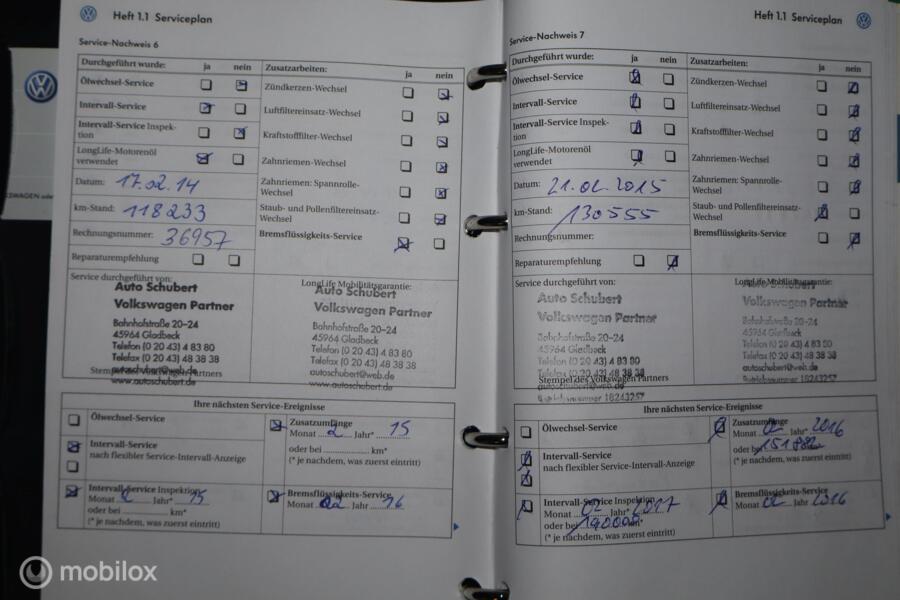 Heft 1.1 Serviceplan
Service-Nachweis 6
Durchgeführt wurde: ja nein
Zusatzarbeiten: ja nein
Ölwechsel-Service
Intervall-Service
Intervall-Service Inspek-
tion
LongLife-Motorenöl
verwendet
Datum: 17.02.14
km-Stand: 118233
Rechnungsnummer: 36957
Reparaturempfehlung
Zündkerzen-Wechsel
Luftfiltereinsatz-Wechsel
Kraftstofffilter-Wechsel
Zahnriemen-Wechsel
Zahnriemen: Spannrolle-
Wechsel
Staub- und Pollenfiltereinsatz-
Wechsel
Bremsflüssigkeits-Service
Service durchgeführt von:
Auto Schubert
Volkswagen Partner
Bahnhofstraße 20-24
45964 Gladbeck
Telefon (0 20 43) 4 83 80
Telefax (0 20 43) 48 38 38
autoschubert@web.de
Stempel des Volkswagen Partners
www.autoschubert.de
LongLife Mobilitätsgarantie:
Auto Schubert
Volkswagen Partner
Bahnhofstraße 20-24
45964 Gladbeck
Telefon (0 20 43) 4 83 80
Telefax (0 20 43) 48 38 38
autoschubert@web.de
www.autoschubert.de
Ihre nächsten Service-Ereignisse
Ölwechsel-Service
Intervall-Service
nach flexibler Service-Intervall-Anzeige
Intervall-Service Inspektion
Monat 2 Jahr* 15
oder bei km*
(* je nachdem, was zuerst eintritt)
Zusatzumfänge
Monat 2 Jahr* 15
oder bei km*
(* je nachdem, was zuerst eintritt)
Bremsflüssigkeits-Service
Monat 02 Jahr 16
Heft 1.1 Serviceplan
Service-Nachweis 7
Durchgeführt wurde: ja nein
Zusatzarbeiten: ja nein
Ölwechsel-Service
Intervall-Service
Intervall-Service Inspek-
tion
LongLife-Motorenöl
verwendet
Datum: 21.02.2015
km-Stand: 130555
Rechnungsnummer:
Reparaturempfehlung
Zündkerzen-Wechsel
Luftfiltereinsatz-Wechsel
Kraftstofffilter-Wechsel
Zahnriemen-Wechsel
Zahnriemen: Spannrolle-
Wechsel
Staub- und Pollenfiltereinsatz-
Wechsel
Bremsflüssigkeits-Service
Service durchgeführt von:
Auto Schubert
Volkswagen Partner
Bahnhofstraße 20-24
45964 Gladbeck
Telefon (0 20 43) 4 83 80
Telefax (0 20 43) 48 38 38
Stempel des Volkswagen Partners
Betriebsnummer 18243257
LongLife Mobilitätsgarantie:
Volkswagen Partner
Bahnhofstraße 20-24
45964 Gladbeck
Telefon (0 20 43) 4 83 80
Telefax (0 20 43) 48 38 38
autoschubert@web.de
Betriebsnummer 18243257
Ihre nächsten Service-Ereignisse
Ölwechsel-Service
Intervall-Service
nach flexibler Service-Intervall-Anzeige
Intervall-Service Inspektion
Monat 02 Jahr* 2017
oder bei 190000 km*
(* je nachdem, was zuerst eintritt)
Zusatzumfänge
Monat 02 Jahr* 2016
oder bei
(* je nachdem, was zuerst eintritt)
Bremsflüssigkeits-Service
Monat 02 Jahr 2016
mobilox